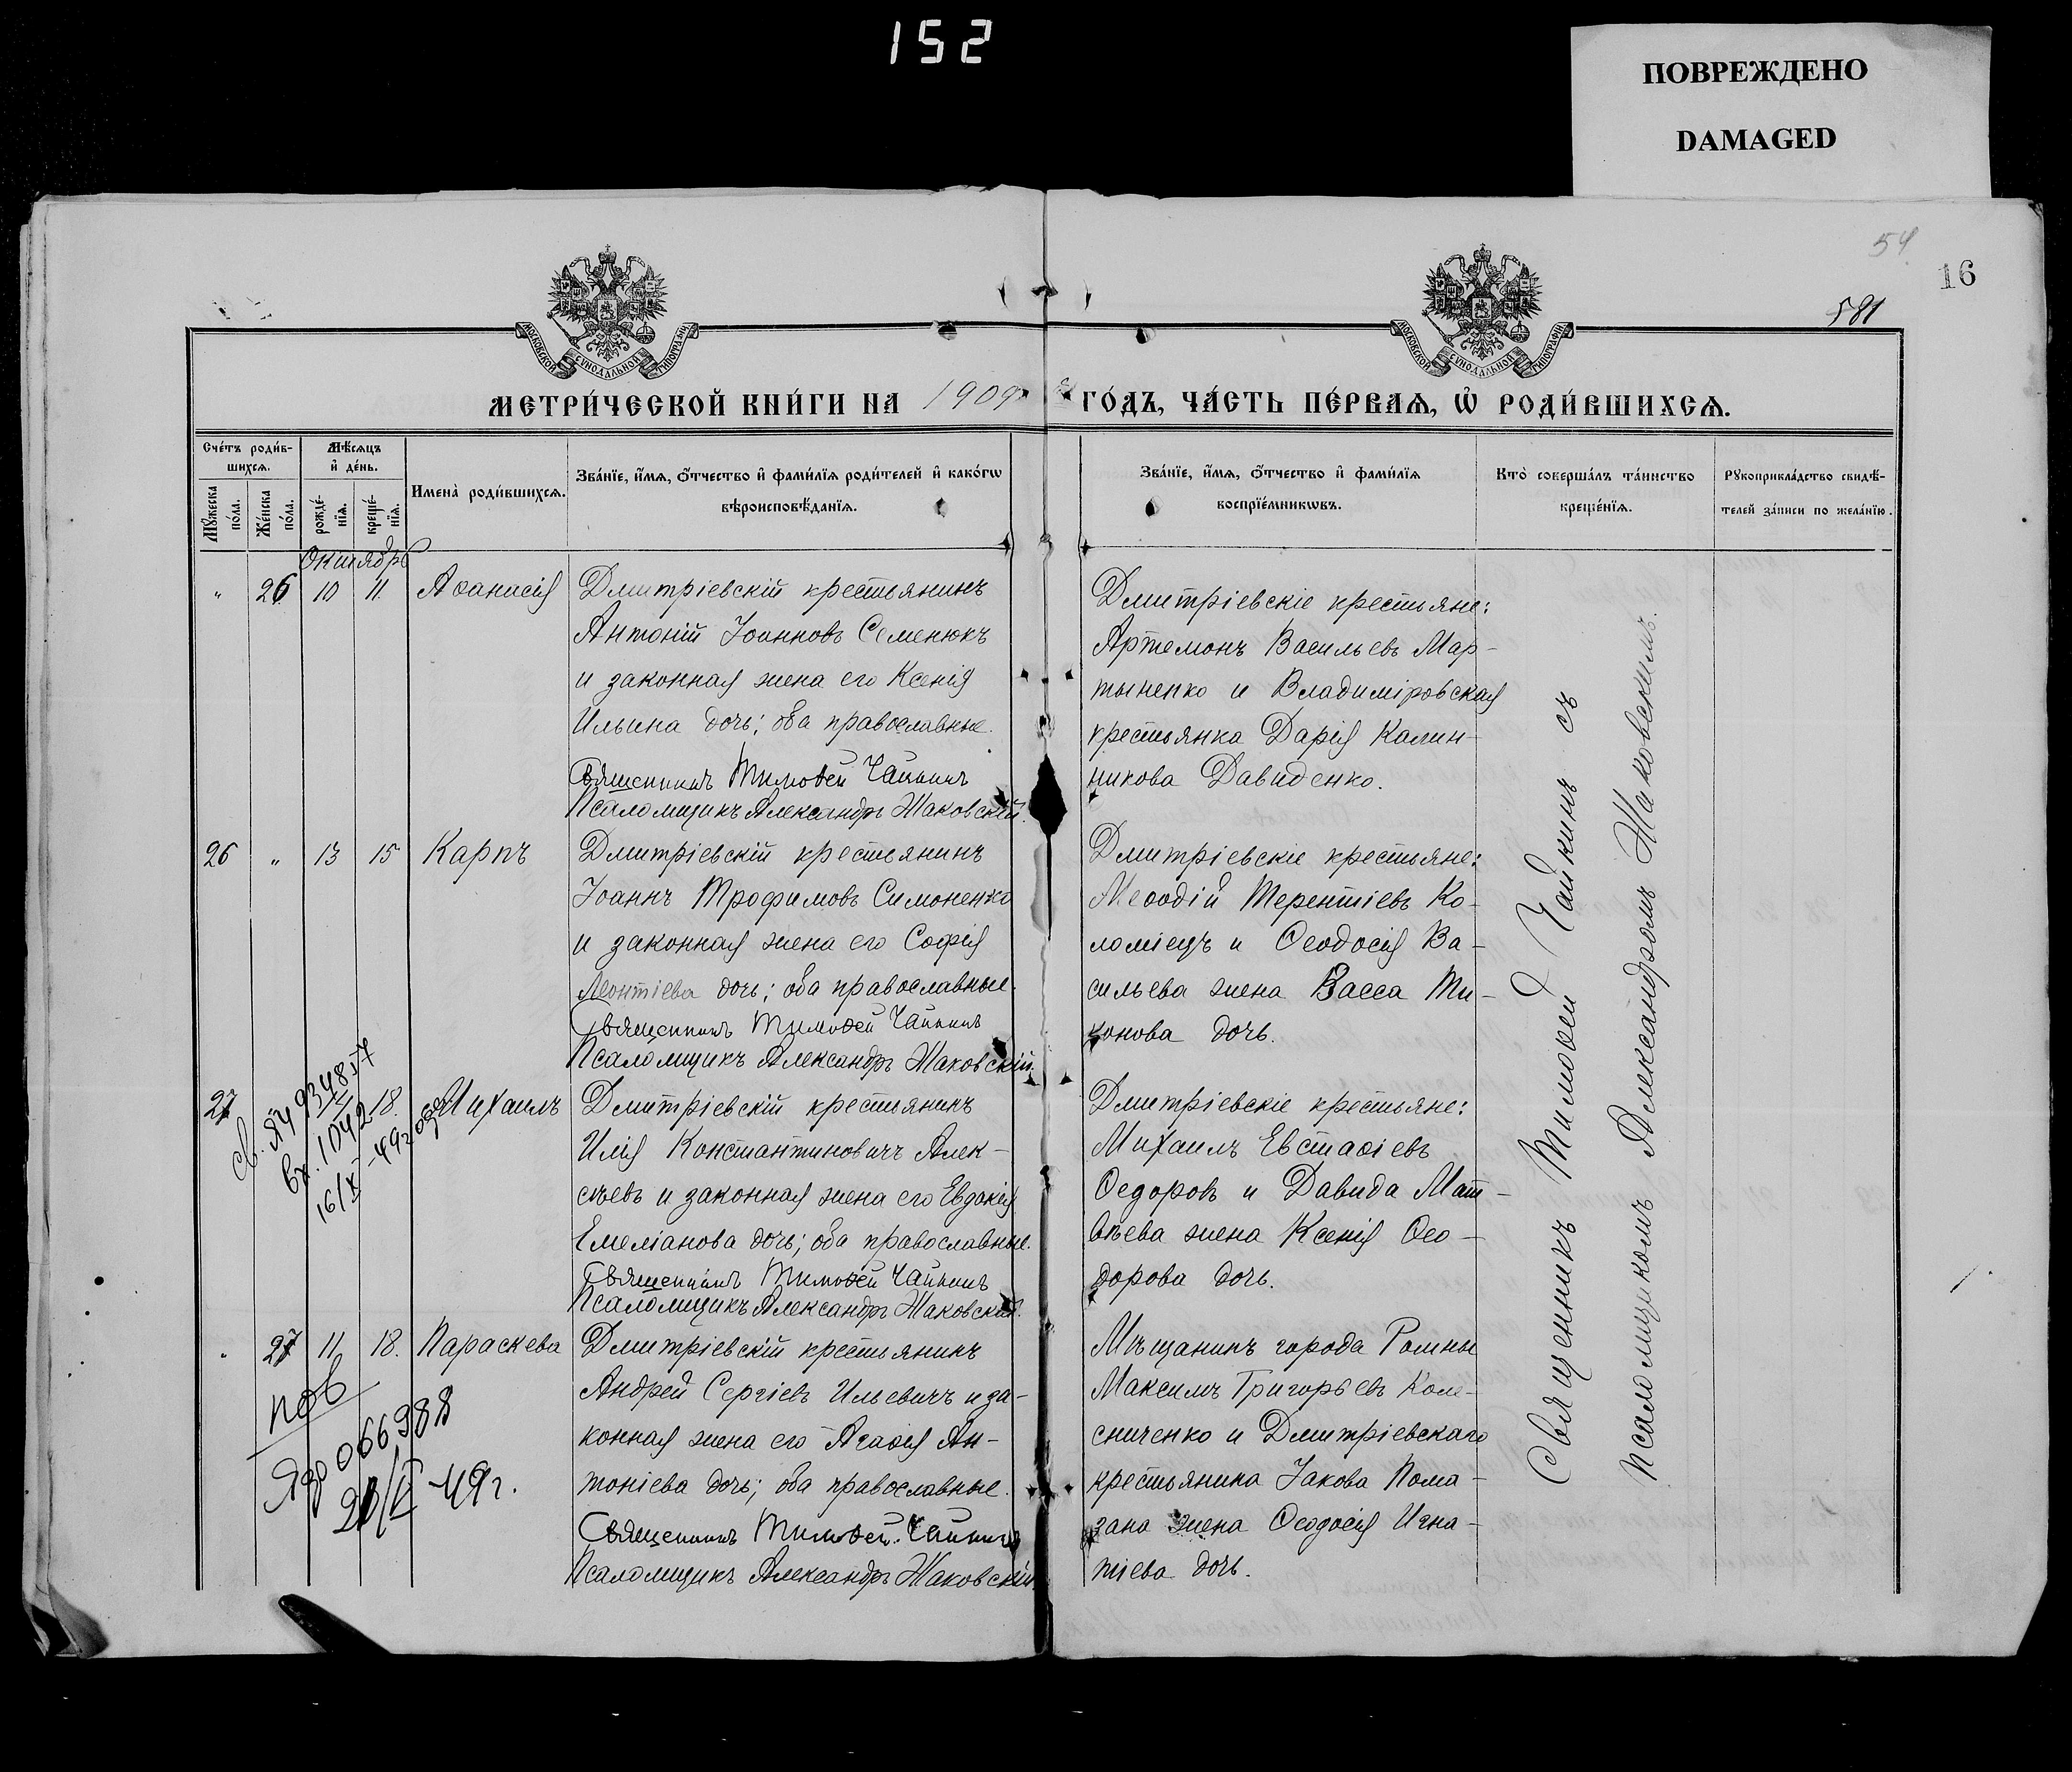 152
ПОВРЕЖДЕНО
DAMAGED
54
16
581
МОСКОВСКОЙ СУНОДАЛЬНОЙ ТИПОГРАФІИ
МОСКОВСКОЙ СУНОДАЛЬНОЙ ТИПОГРАФІИ
МЕТРИ́ЧЕСКОЙ КНИ́ГИ НА 1909 ГО́ДЪ, ЧА́СТЬ ПЕ́РВАѦ, Ѡ҆ РОДИ́ВШИХСѦ.
Сче́тъ роди́в-
шихсѧ.
Мꙋ́жеска по́ла.
Же́нска по́ла.
Мѣ́сѧцъ
и҆ де́нь.
рожде́-
нїѧ.
креще́-
нїѧ.
Имена̀ роди́вшихсѧ.
Зва́нїе, и҆́мѧ, ѻ҆́тчество и҆ фами́лїѧ роди́телей и҆ како́гѡ
вѣроисповѣ́данїѧ.
Зва́нїе, и҆́мѧ, ѻ҆́тчество и҆ фами́лїѧ
воспрїе́мникѡвъ.
Кто̀ соверша́лъ та́инство
креще́нїѧ.
Рꙋкоприкла́дство свидѣ́-
телей за́писи по жела́нїю.
Октябрь
" 26 10 11. Аѳанасія
Дмитріевскій крестьянинъ
Антоній Іоанновъ Семенюкъ
и законная жена его Ксенія
Ильина дочь; оба православные.
Священникъ Тимоѳей Чайкинъ
Псаломщикъ Александръ Жаковскій.
Дмитріевскіе крестьяне:
Артемонъ Васильевъ Мар-
тыненко и Владиміровская
крестьянка Дарія Калин-
никова Давиденко.
26 " 13 15 Карпъ
Дмитріевскій крестьянинъ
Іоаннъ Трофимовъ Симоненко
и законная жена его Софія
Леонтіева дочь; оба православные.
Священникъ Тимоѳей Чайкинъ
Псаломщикъ Александръ Жаковскій.
Дмитріевскіе крестьяне:
Меѳодій Терентіевъ Ко-
ломіецъ и Ѳеодосія Ва-
сильева жена Васса Ти-
хонова дочь.
27 18. Михаилъ
св. ЯЧ 934857
вх. 1042
16/X-49 года
Дмитріевскій крестьянинъ
Илія Константиновичъ Алек-
сѣевъ и законная жена его Евдокія
Емеліанова дочь; оба православные.
Священникъ Тимоѳей Чайкинъ
Псаломщикъ Александръ Жаковскій.
Дмитріевскіе крестьяне:
Михаилъ Евстаѳіевъ
Ѳедоровъ и Давида Мат-
вѣева жена Ксенія Ѳео-
дорова дочь.
" 27 11 18. Параскева
пов
ЯЭ 066988
-49г.
Дмитріевскій крестьянинъ
Андрей Сергіевъ Ильевичъ и за-
конная жена его Агаѳія Ан-
тоніева дочь; оба православные.
Священникъ Тимоѳей Чайкинъ
Псаломщикъ Александръ Жаковскій.
Мѣщанинъ города Ромны
Максимъ Григорьевъ Коле-
сниченко и Дмитріевскаго
крестьянина Іакова Пома-
зана жена Ѳеодосія Игна-
тіева дочь.
Священникъ Тимоѳей Чайкинъ съ
Псаломщикомъ Александромъ Жаковскимъ.